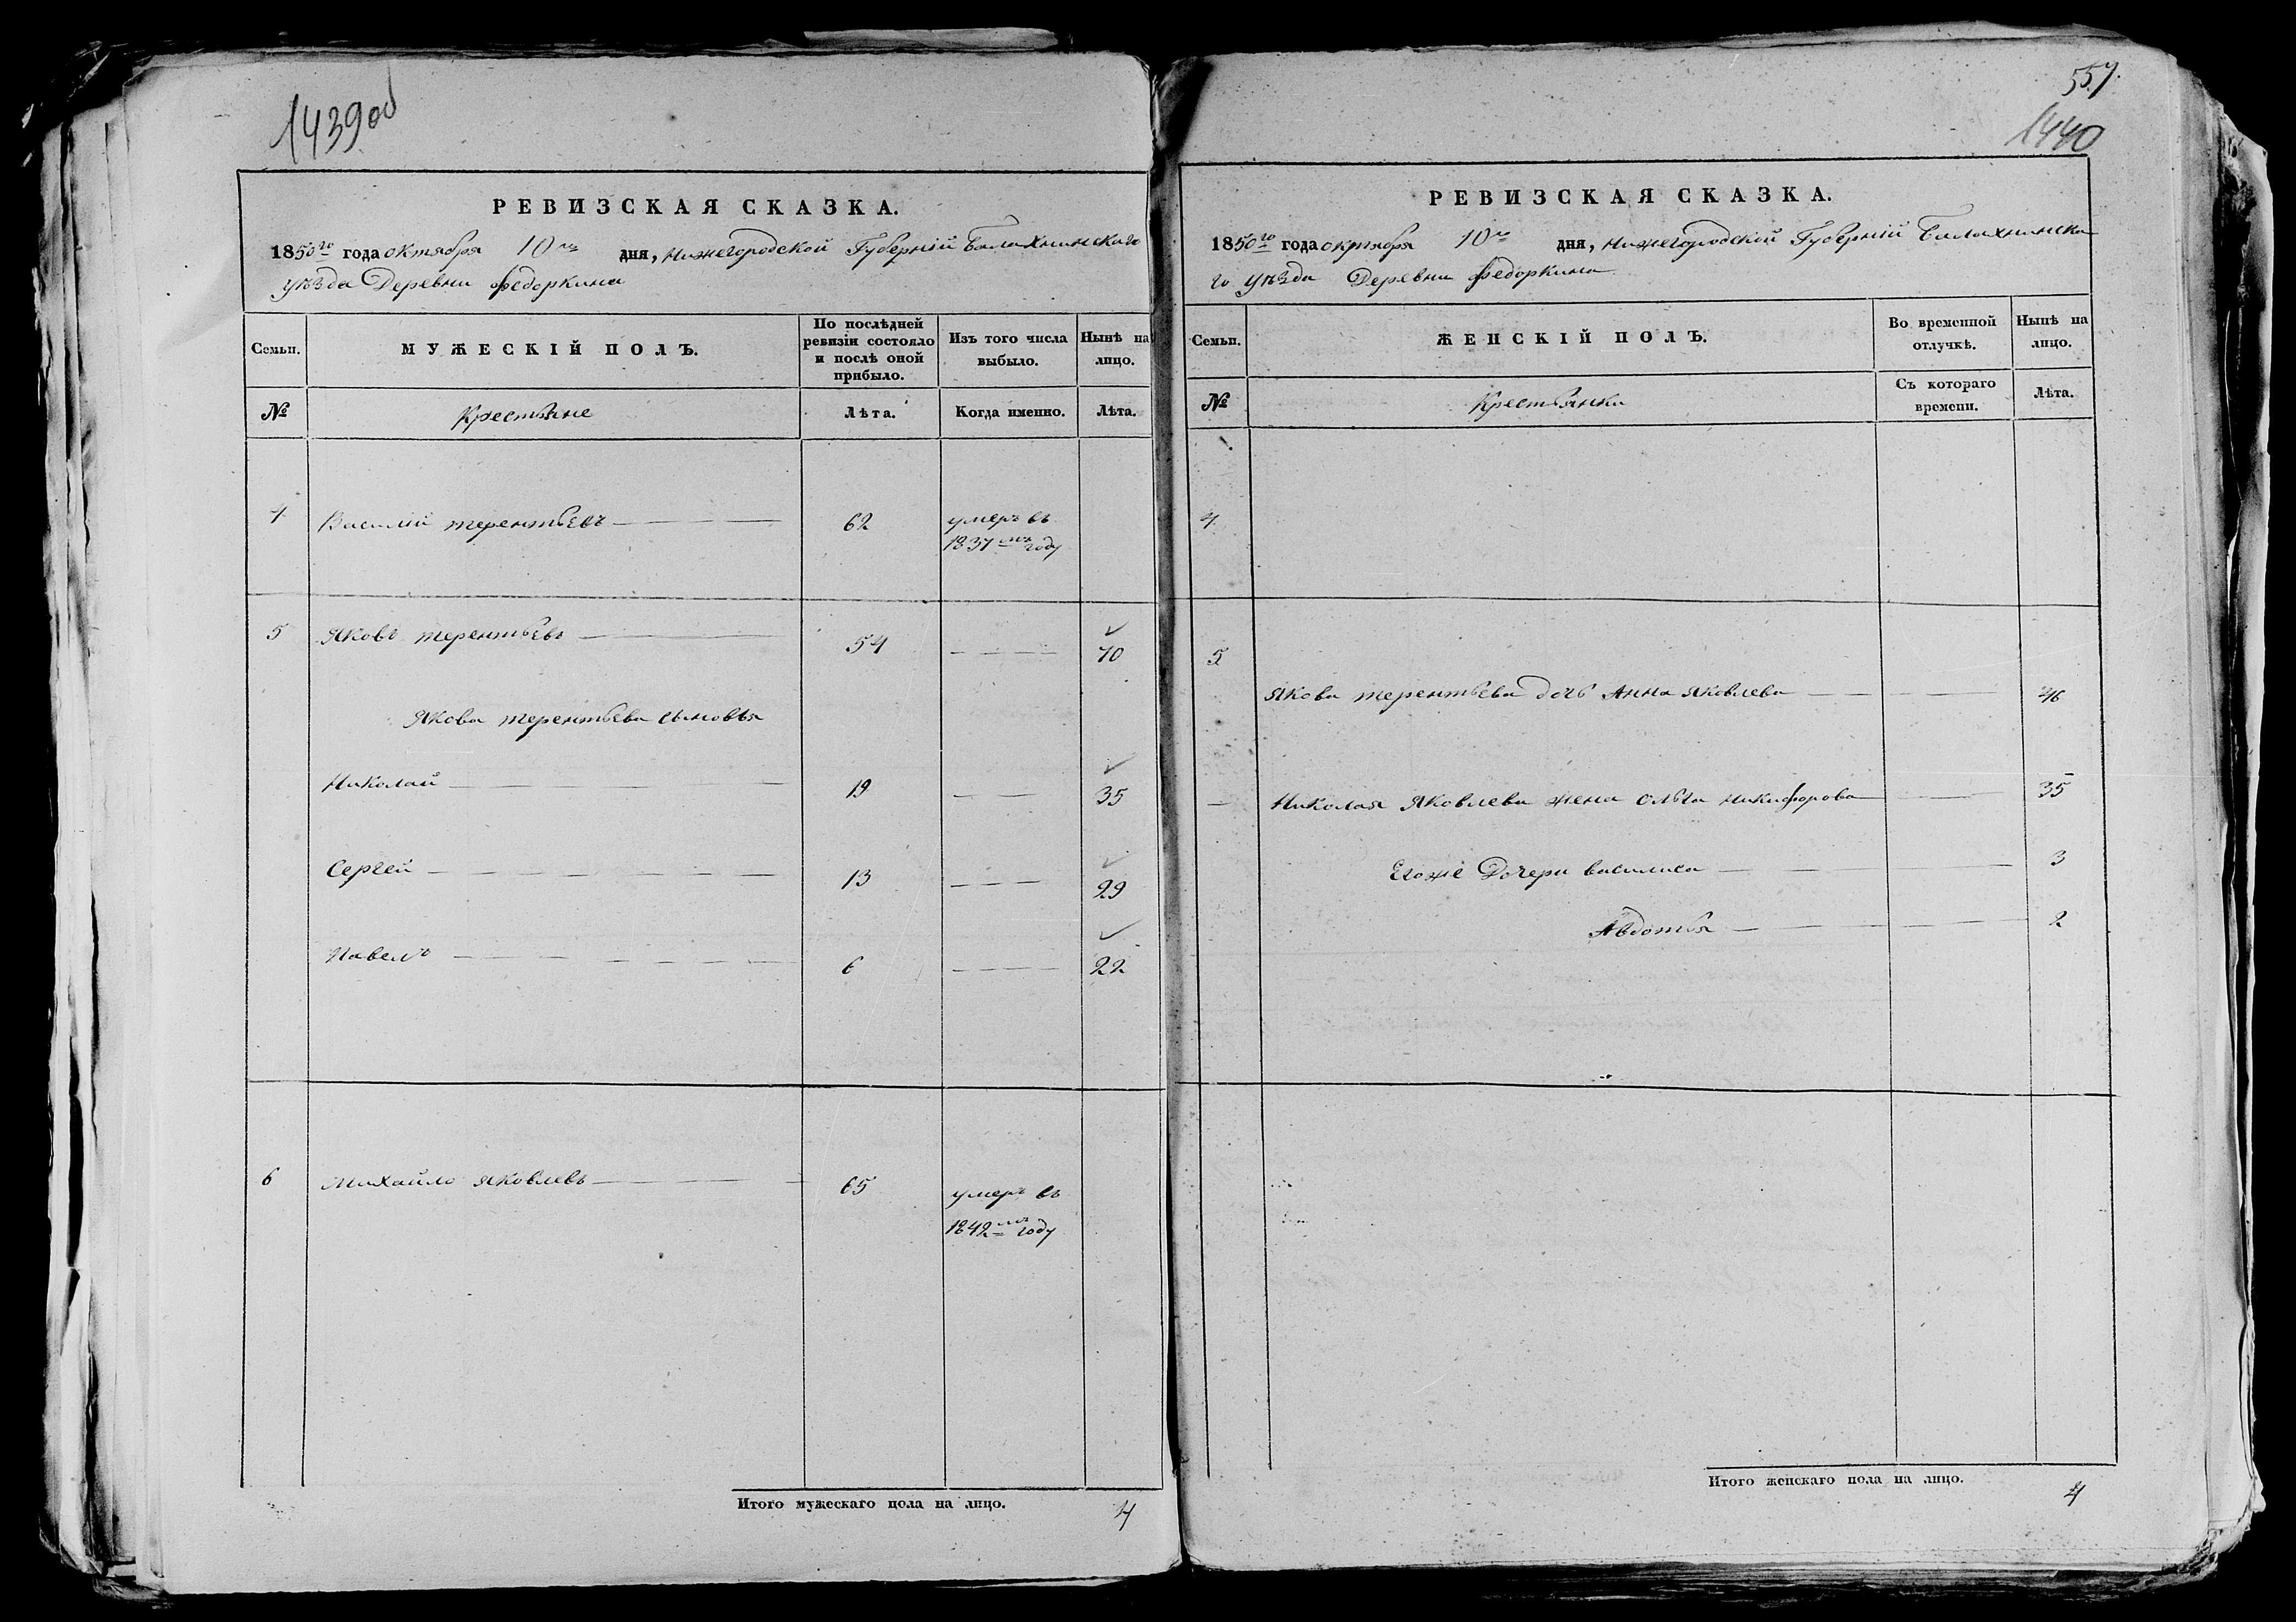 1439 об
РЕВИЗСКАЯ СКАЗКА.
1850го года октября 10го дня, Нижегородской Губерніи Балахнинскаго
уѣзда Деревни Федоркина
Семьи. МУЖЕСКІЙ ПОЛЪ. По послѣдней ревизіи состояло и послѣ оной прибыло. Изъ того числа выбыло. Нынѣ на лицо.
№ Крестьяне Лѣта. Когда именно. Лѣта.
4 Василій терентьевъ 62 умеръ въ
1837мъ году
5 Яковъ терентьевъ 54 70
Якова терентьева сыновья
Николай 19 35
Сергей 13 29
Павелъ 6 22
6 Михайло Яковлевъ 65 умеръ въ
1842мъ году
Итого мужескаго пола на лицо. 4
557.
1440
РЕВИЗСКАЯ СКАЗКА.
1850го года октября 10го дня, Нижегородской Губерніи Балахнинска
го уѣзда Деревни Федоркина
Семьи. ЖЕНСКІЙ ПОЛЪ. Во временной отлучкѣ. Нынѣ на лицо.
№ Крестьянки Съ котораго времени. Лѣта.
4
5
Якова терентьева дочь Анна Яковлева 46
Николая Яковлева жена Ольга никифорова 35
Егоже Дочери василиса 3
Авдотья 2
Итого женскаго пола на лицо. 4